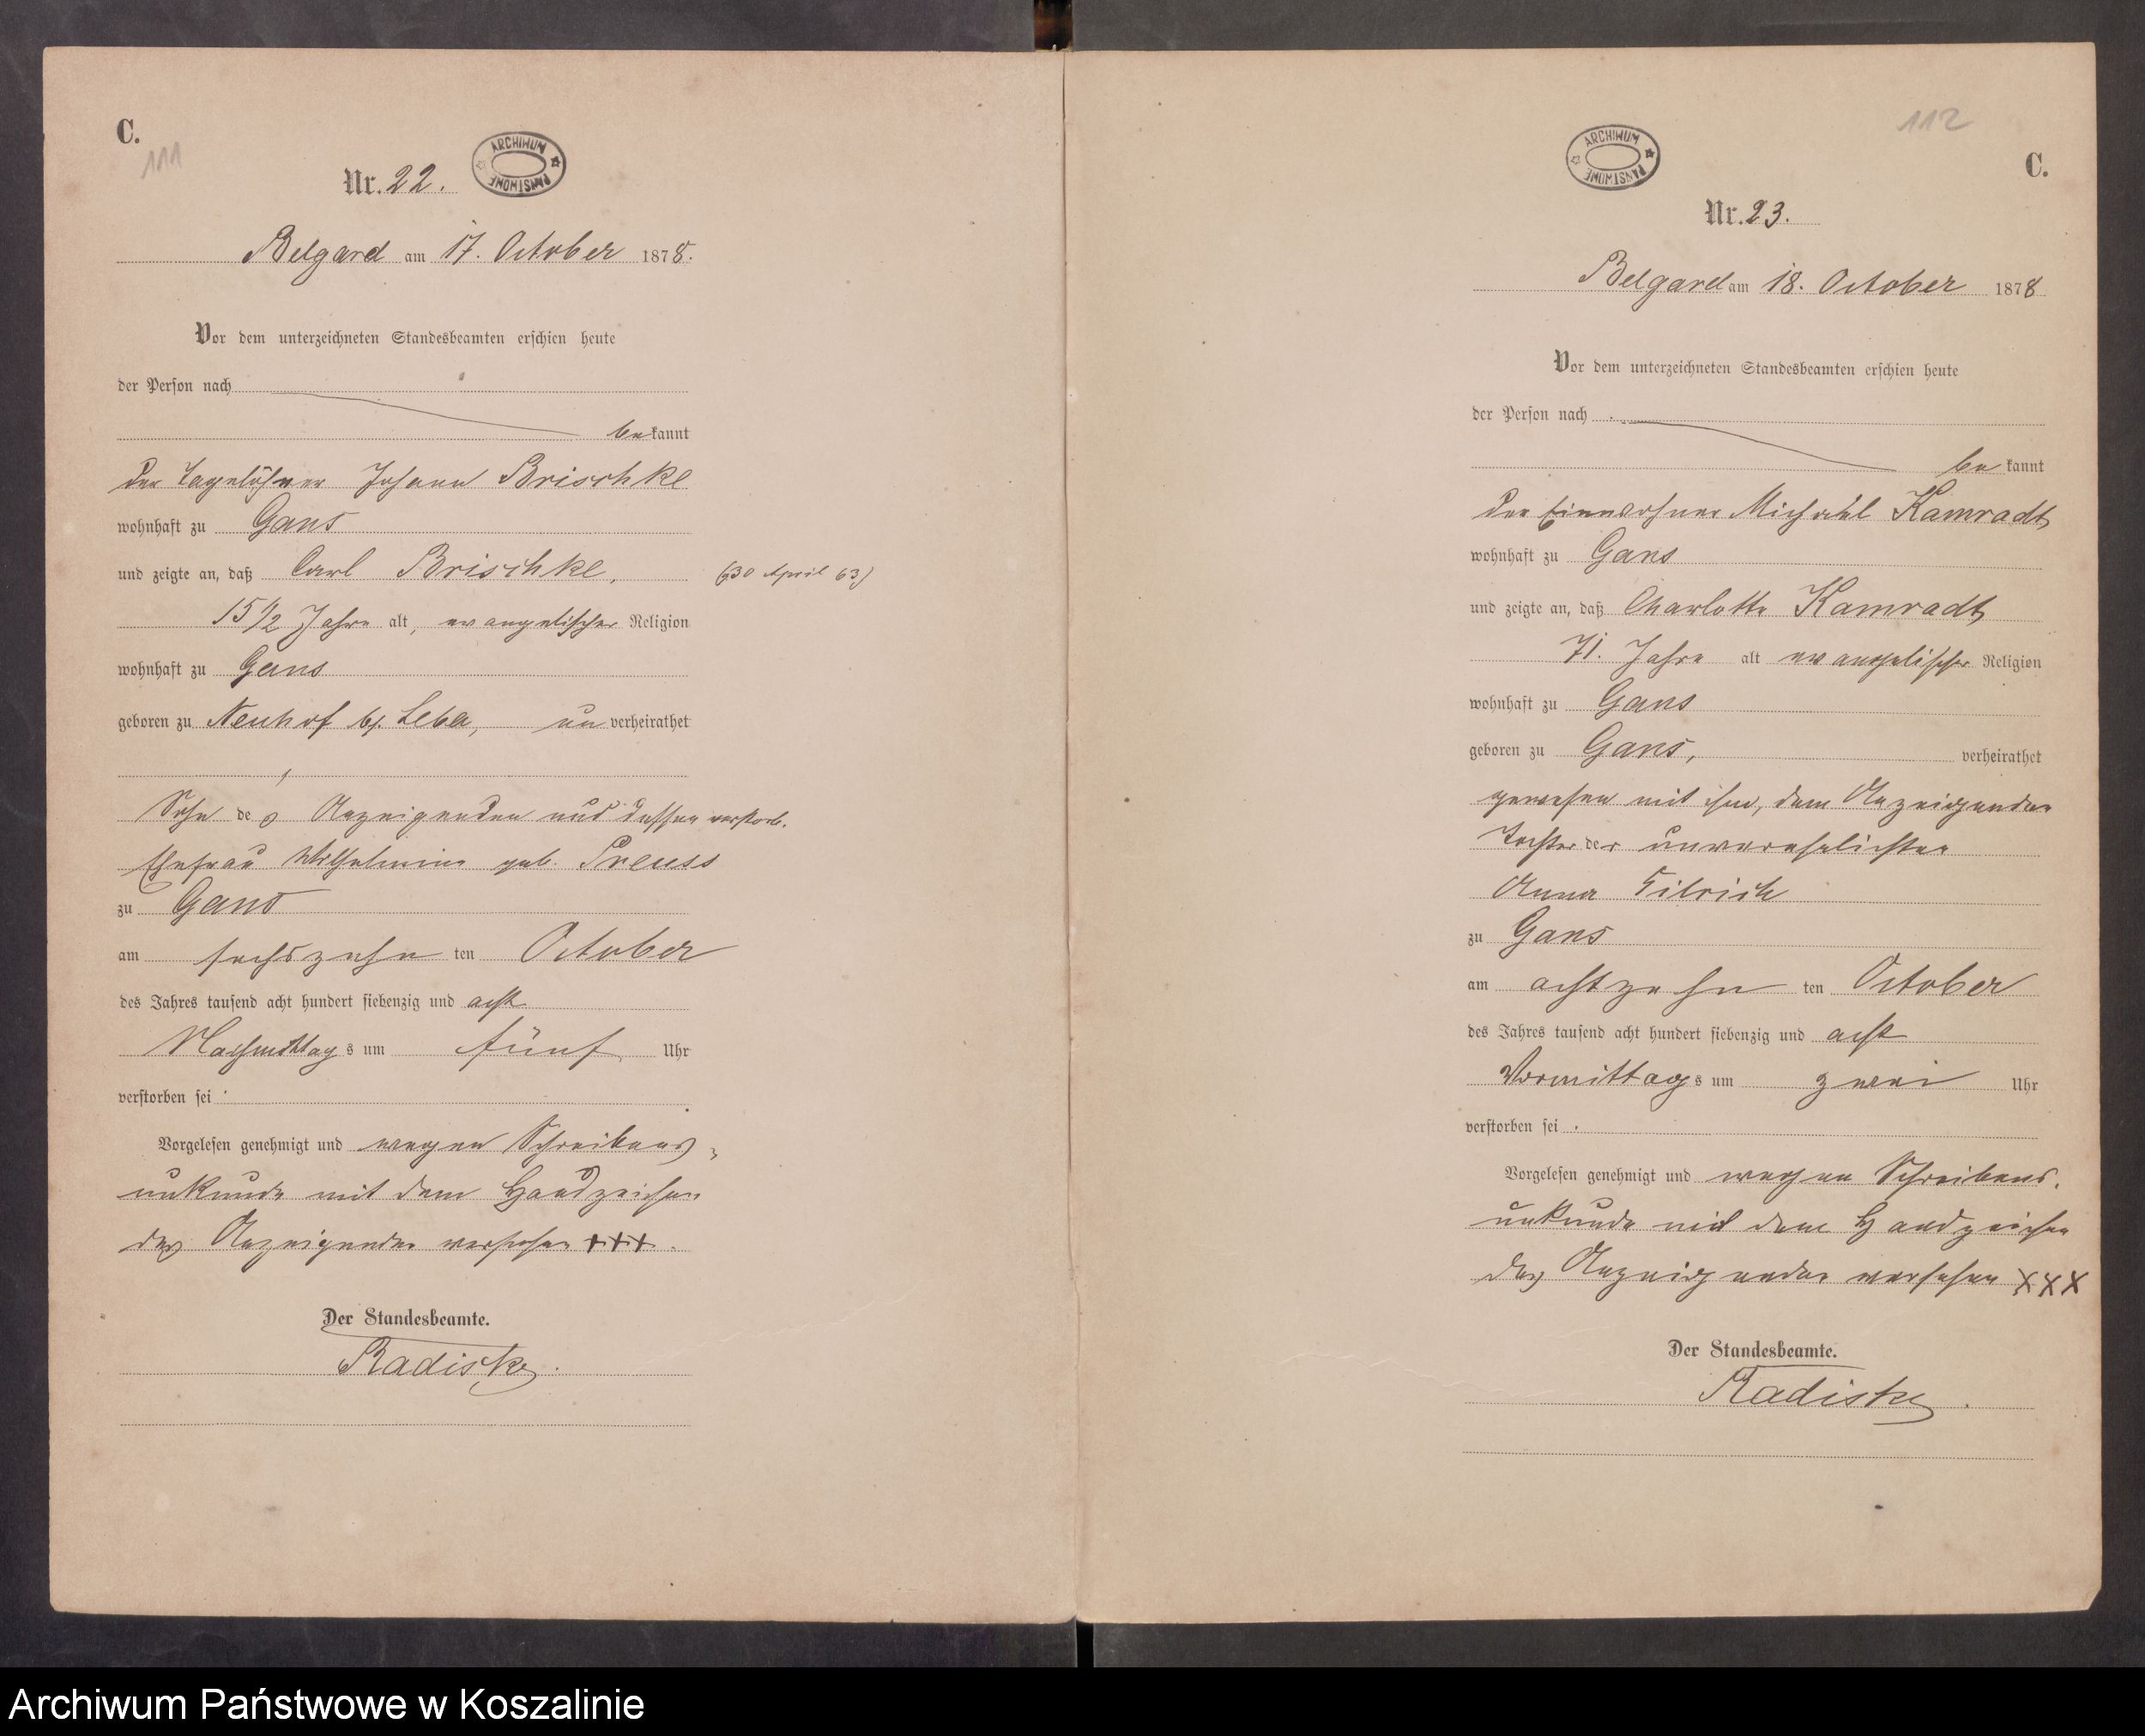 C.
111
Nr. 22.
ARCHIWUM PAŃSTWOWE
Belgard am 17. October 1878.
Vor dem unterzeichneten Standesbeamten erschien heute
der Person nach
bekannt
der Tagelöhner Johann Brischke
wohnhaft zu Gans
und zeigte an, daß Carl Brischke,
(30 April 63)
15 1/2 Jahre alt, evangelischer Religion
wohnhaft zu Gans
geboren zu Neuhof bj. Leba, unverheirathet
Sohn des Anzeigenden und dessen verstorb.
Ehefrau Wilhelmine geb. Preuss
zu Gans
am sechszehnten October
des Jahres tausend acht hundert siebenzig und acht
Nachmittags um fünf Uhr
verstorben sei.
Vorgelesen genehmigt und wegen Schreibens-
unkunde mit dem Handzeichen
des Anzeigenden versehen +++.
Der Standesbeamte.
Radiske.
112
C.
ARCHIWUM PAŃSTWOWE
Nr. 23.
Belgard am 18. October 1878
Vor dem unterzeichneten Standesbeamten erschien heute
der Person nach
bekannt
der Einwohner Michael Kamradt
wohnhaft zu Gans
und zeigte an, daß Charlotte Kamradt
71. Jahre alt evangelischer Religion
wohnhaft zu Gans
geboren zu Gans, verheirathet
gewesen mit ihm, dem Anzeigenden
Tochter der unverehelichten
Anna
zu Gans
am achtzehnten October
des Jahres tausend acht hundert siebenzig und acht
Vormittags um zwei Uhr
verstorben sei.
Vorgelesen genehmigt und wegen Schreibens-
unkunde mit dem Handzeichen
des Anzeigenden versehen XXX
Der Standesbeamte.
Radiske.
Archiwum Państwowe w Koszalinie